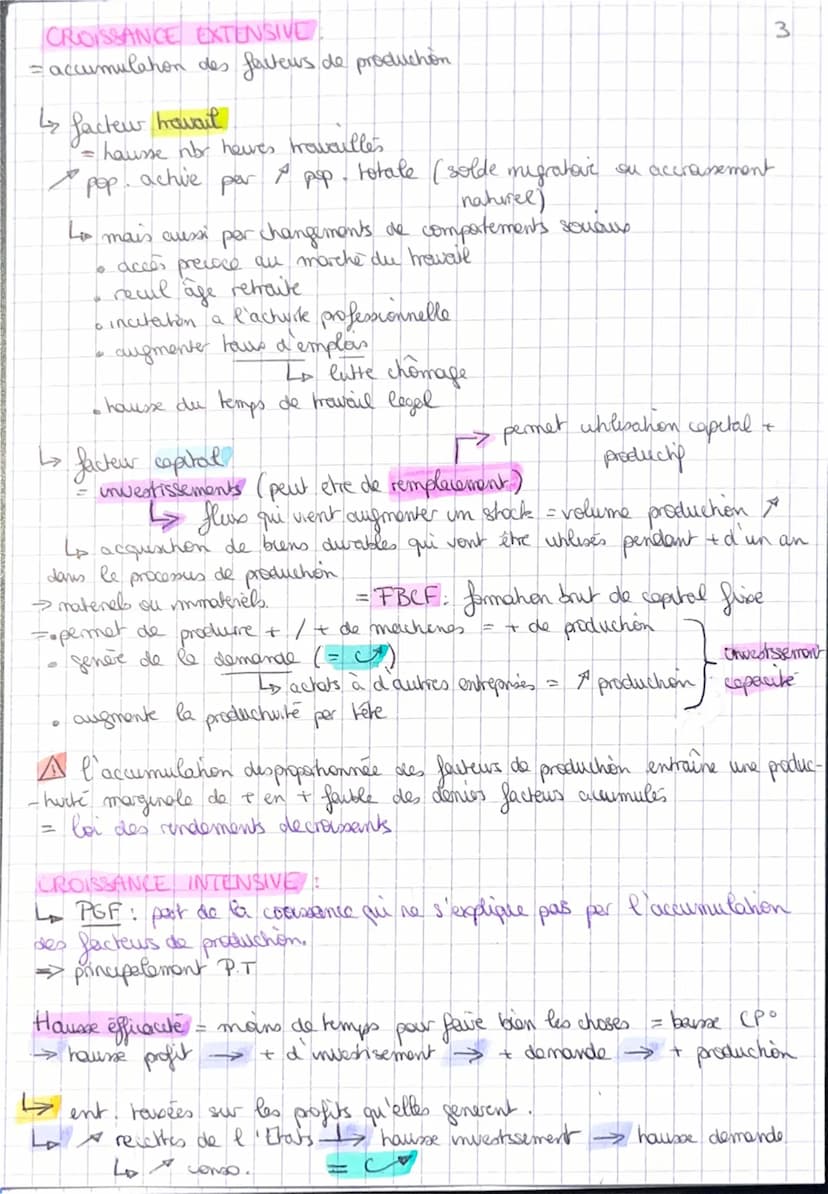 CROISSANCE EXTENSIVE : 3
= accumulation des facteurs de production
↳ facteur travail
= hausse nbr heures travaillés
↗ pop. active par ↗ pop. totale (solde migratoir ou accroissement
naturel)
↳ mais aussi par changements de comportements sociaux
• accès précoce au marché du travail
• recul âge retraite
• incitation a l'activité professionnelle
• augmenter taux d'emplois
↳ lutte chômage
• hausse du temps de travail legal
→ permet utilisation capital +
productif
↳ facteur capital
= investissements (peut etre de remplacement)
↳ flux qui vient augmenter un stock = volume production ↗
↳ acquisition de biens durables qui vont être utilisés pendant + d'un an
dans le processus de production
→ materiels ou immateriels. = FBCF : formation brut de capital fixe
= • permet de produire + / + de machines = + de production
• génére de la demande (= C↗)
↳ achats à d'autres entreprises = ↗ production
investissement
capacité
• augmente la productivité par tête
⚠ l'accumulation disproportionnée des facteurs de production entraîne une produc-
-tivité marginale de + en + faible des derniers facteurs accumulés
= loi des rendements decroissants
CROISSANCE INTENSIVE :
↳ PGF : part de la croissance qui ne s'explique pas par l'accumulation
des facteurs de production.
=> principalement P.T
Hausse éfficacité = moins de temps pour faire bien les choses = baisse CP°
→ hausse profit → + d'investisement → + demande → + production
↳ ent. taxées sur les profits qu'elles generent.
↳ ↗ recettes de l'Etats ↳ hausse investissement → hausse demande
↳ ↗ conso. = C↗